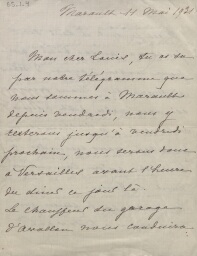 65.L9
Marault 11 Mai 1921
Mon cher Louis, tu as su
par notre télégramme que
nous sommes à Marault
depuis vendredi, nous y
resterons jusqu'à vendredi
prochain, nous serons donc
à Versailles avant l'heure
du dîner ce jour là.
Le chauffeur du garage
d'Avallon nous conduira